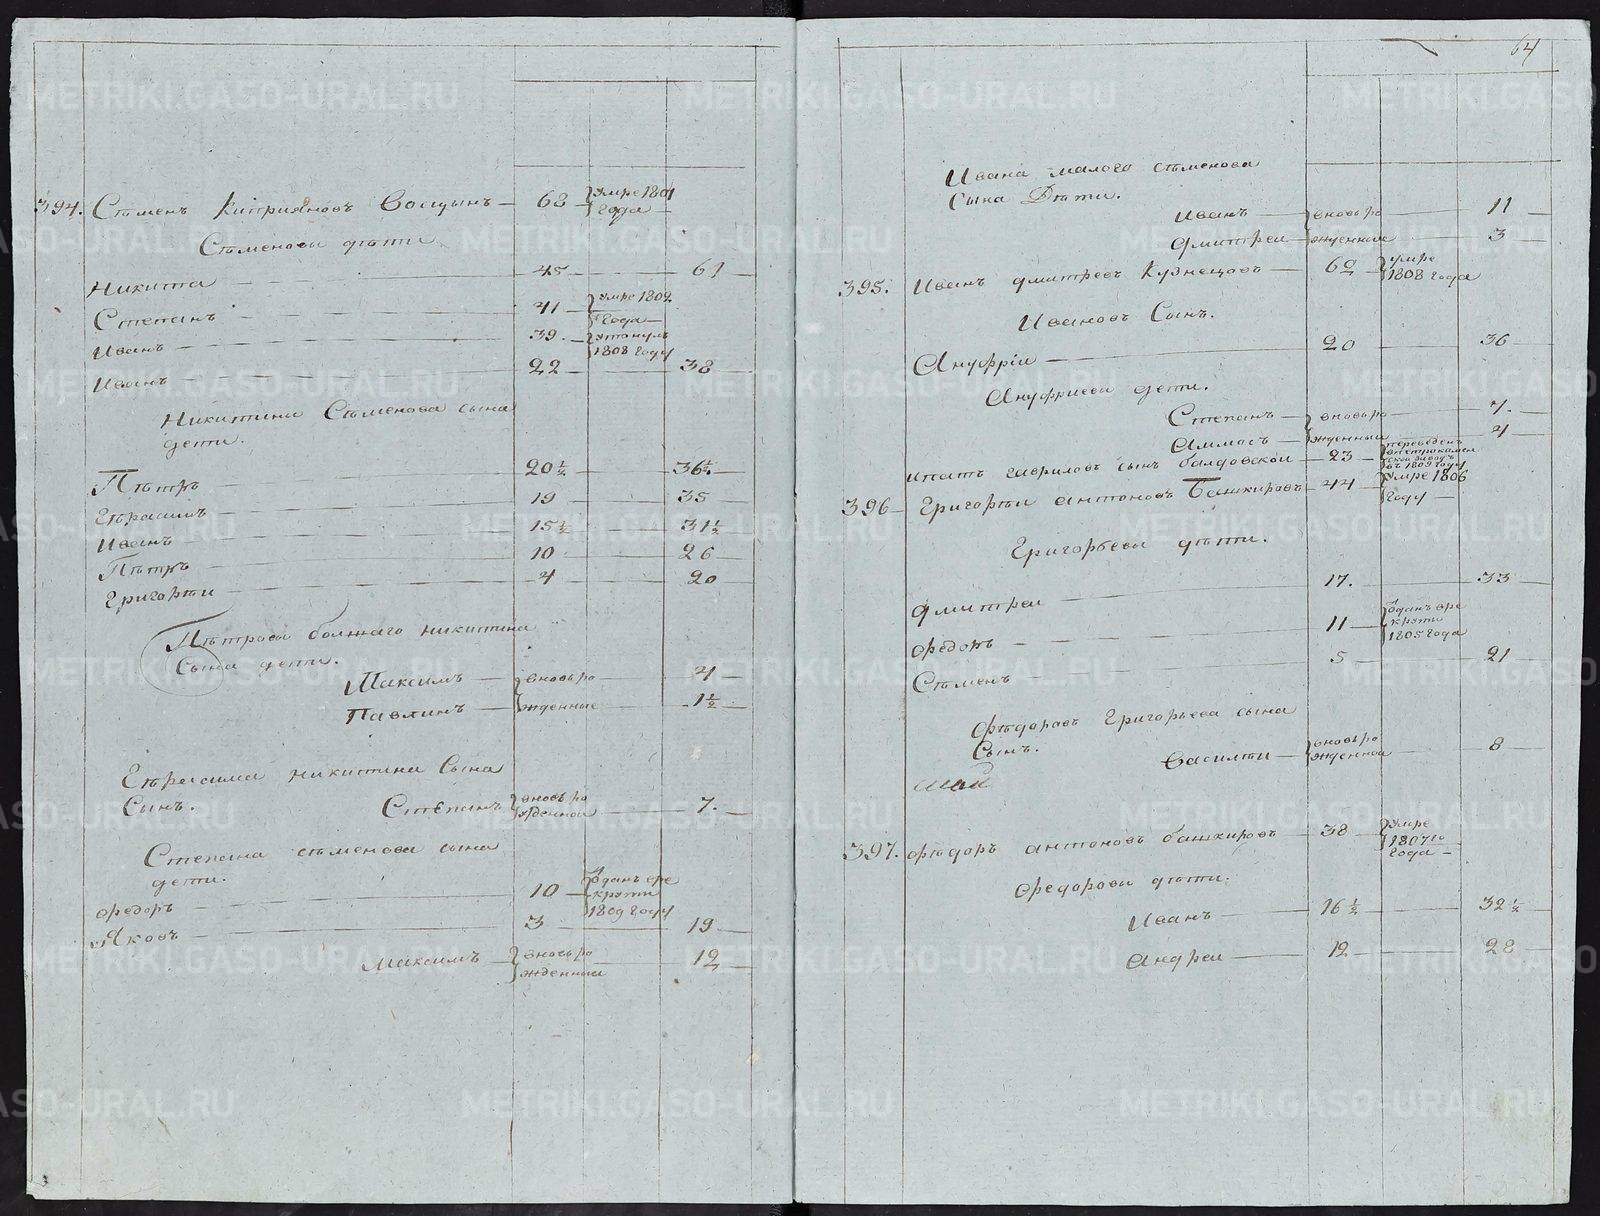 394. Сѣменъ Киприяновъ 68 умре 1801
года
Сѣменовы дѣти
Никита 45 61
Степанъ 41 умре 1802
года
Иванъ 39 утонулъ
1808 году
Иванъ 22 38
Никитины Сѣменова сына
дети.
Пѣтръ 20 1/2 36 1/2
Гѣрасимъ 19 35
Иванъ 15 1/2 31 1/2
Пѣтръ 10 26
Григорѣи 4 20
Пѣтровы болшаго никитина
Сына дети.
Максимъ вновь ро 4
Павлинъ жденные 1 1/2
Гѣрасима никитина Сына
Сынъ.
Степанъ вновь ро 7.
жденной
Степана сѣменова сына
дети.
Федоръ 10 Отданъ вре
круты
1809 году
Яковъ 3 19
Максимъ вновь ро 12
жденный
64
Ивана малого сѣменова
Сына Дѣти.
Иванъ вновь ро 11
Дмитреи жденные 3
395. Иванъ дмитревъ Кузнецовъ 62 умре
1808 года
Ивановъ Сынъ.
Ануфріи 20 36
Ануфриевы дети.
Степанъ вновь ро 7.
Аммосъ жденный 4
ипатъ гавриловъ сынъ 23 переведенъ
скои заводъ
въ 1809 году
396 Григорѣи антоновъ Башкировъ 44 умре 1806
году
Григорьевы дѣти.
Дмитреи 17. 33
Федоръ 11 Отданъ вре
круты
1805 года
Сѣменъ 5 21
Фѣдоравъ Григорьева сына
Сынъ.
Василѣи вновь ро 8
жденной
397. Фѣдоръ антоновъ башкировъ 38 умре
1807го
года
Федоровы дѣти.
Иванъ 16 1/2 32 1/2
Андреи 12 28
METRIKI.GASO-URAL.RU